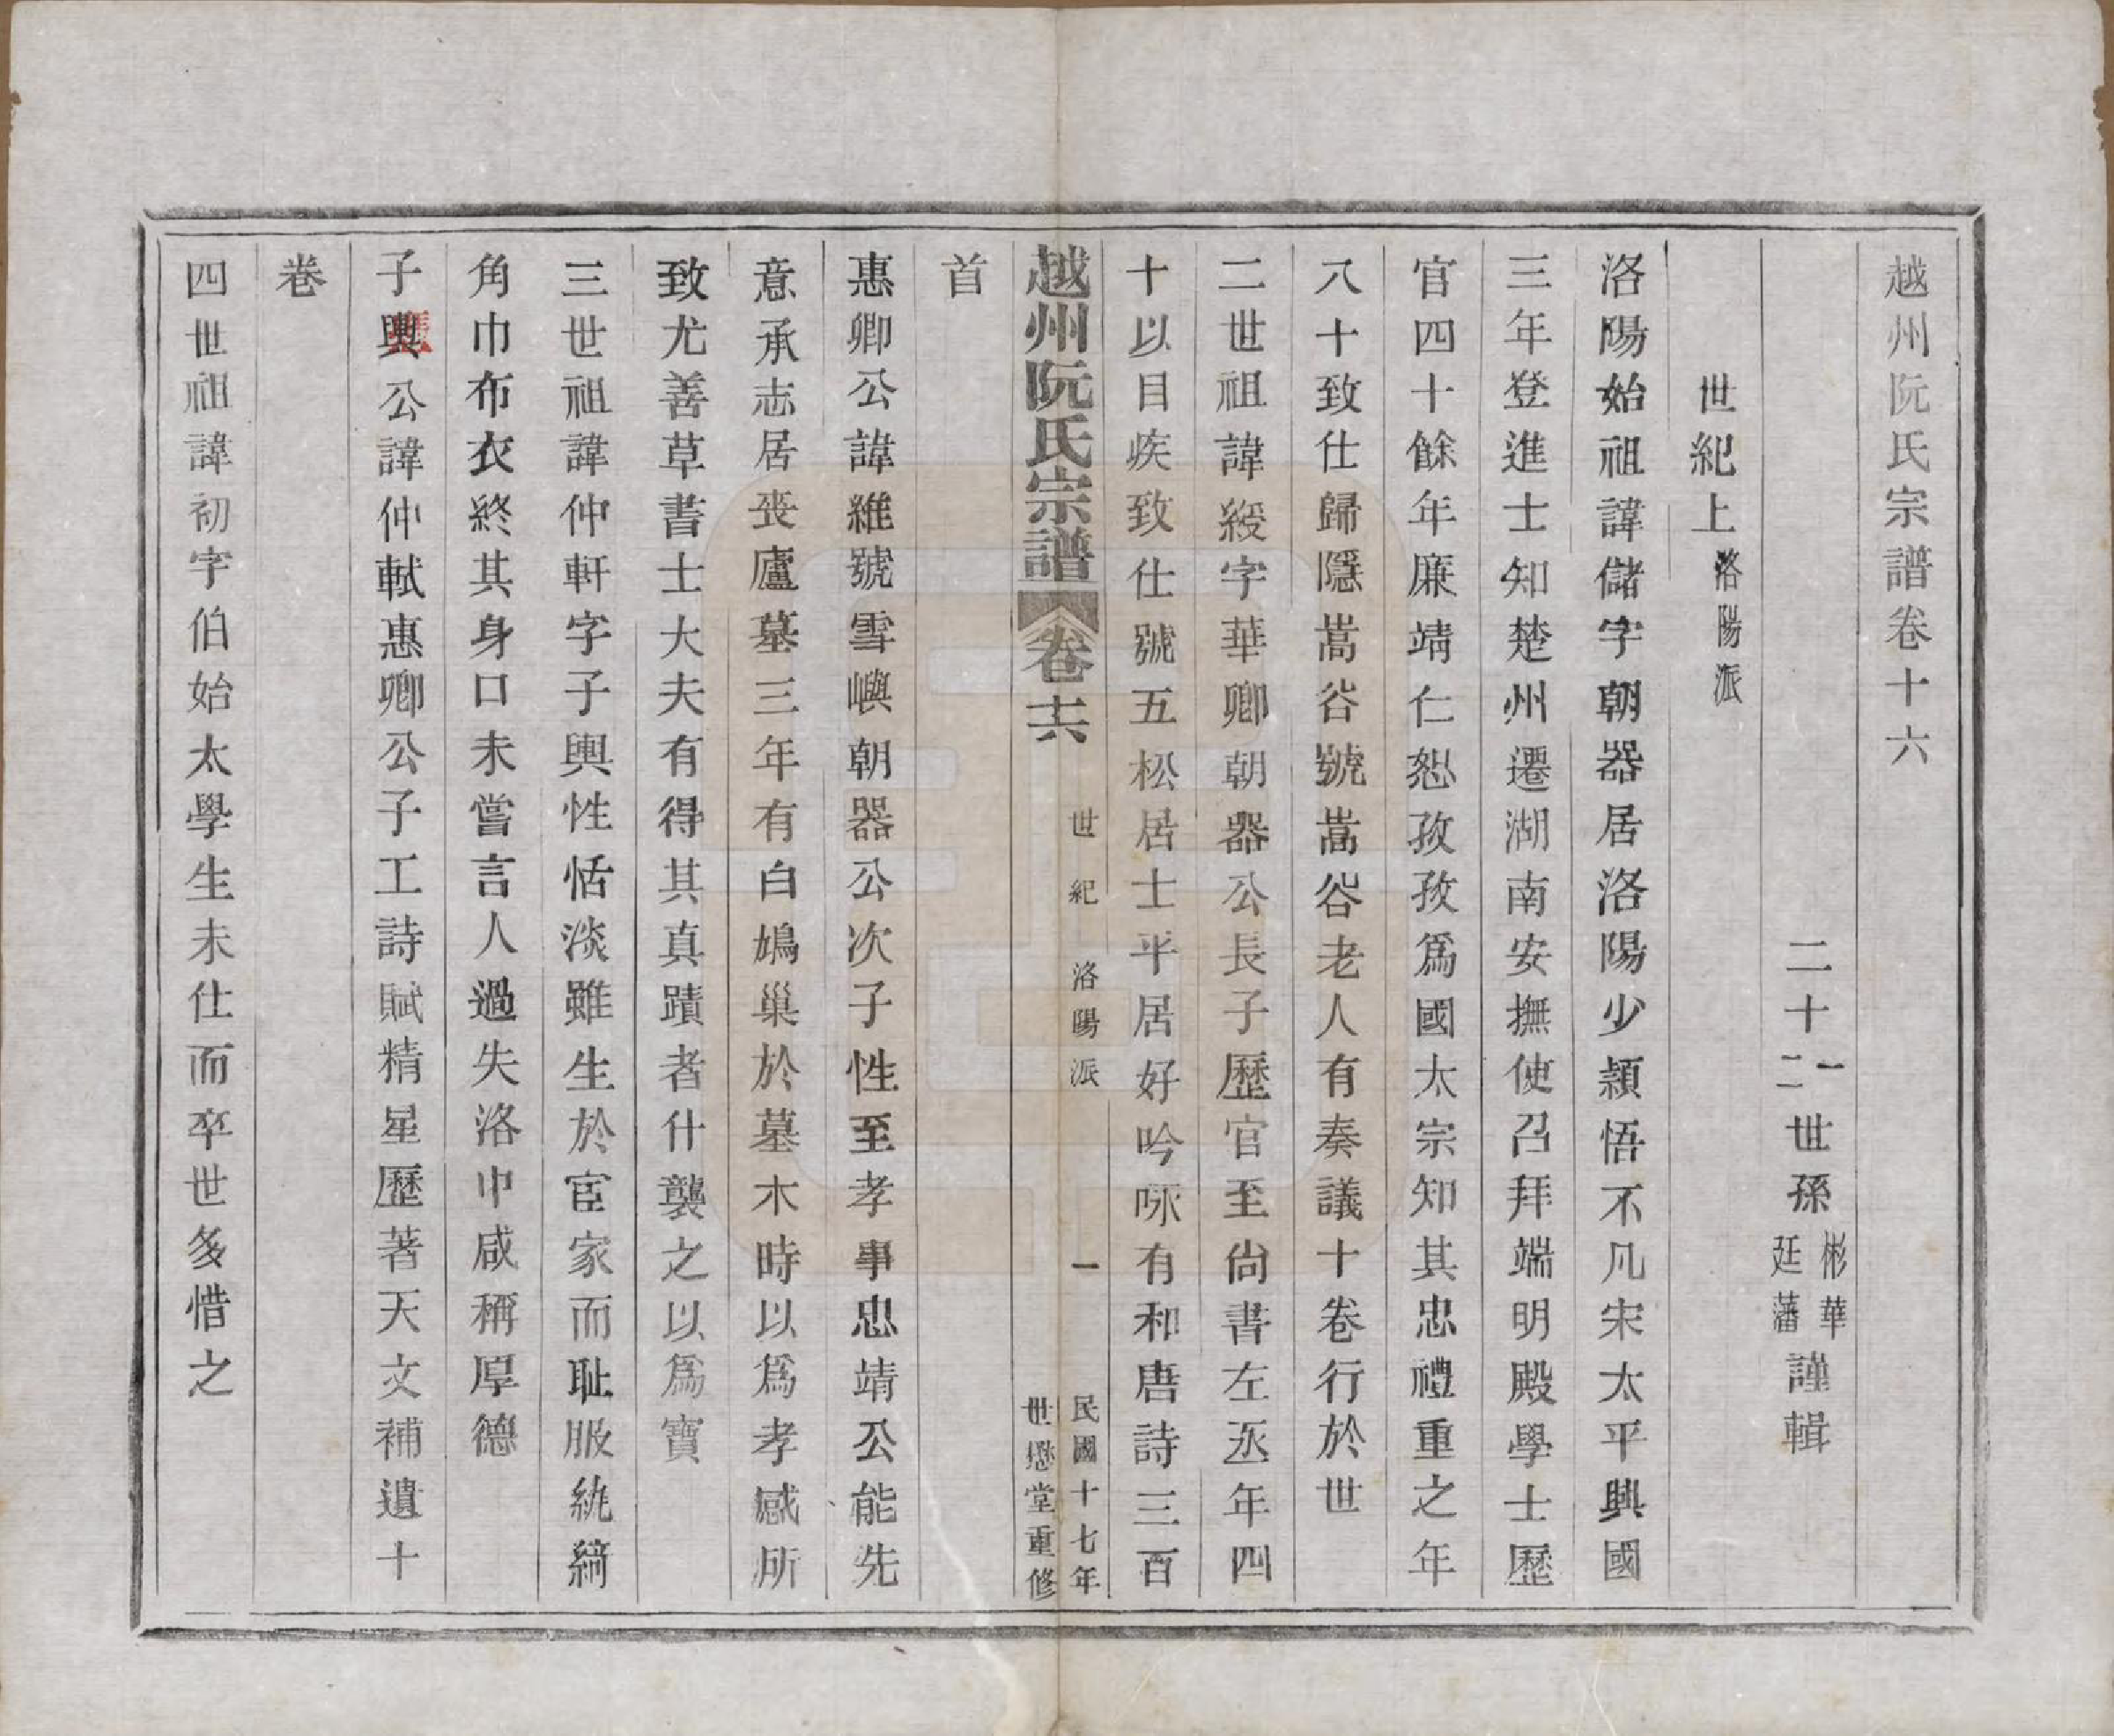 越州阮氏宗譜卷十六
二十一二世孫彬華廷藩謹輯
世紀上洛陽派
洛陽始祖諱儲字朝器居洛陽少穎悟不凡宋太平興國
三年登進士知楚州遷湖南安撫使召拜端明殿學士歷
官四十餘年廉靖仁恕孜孜爲國太宗知其忠禮重之年
八十致仕歸隱嵩谷號嵩谷老人有奏議十卷行於世
二世祖諱綬字華卿朝器公長子歷官至尙書左丞年四
十以目疾致仕號五松居士平居好吟咏有和唐詩三百
越州阮氏宗譜卷十六
世紀 洛陽派 一
民國十七年
世懋堂重修
首
惠卿公諱維號雪嶼朝器公次子性至孝事忠靖公能先
意承志居喪廬墓三年有白鳩巢於墓木時以爲孝感所
致尤善草書士大夫有得其真蹟者什襲之以爲寶
三世祖諱仲軒字子輿性恬淡雖生於宦家而耻服紈綺
角巾布衣終其身口未嘗言人過失洛中咸稱厚德
子輿公諱仲軾惠卿公子工詩賦精星歷著天文補遺十
卷
四世祖諱初字伯始太學生未仕而卒世多惜之